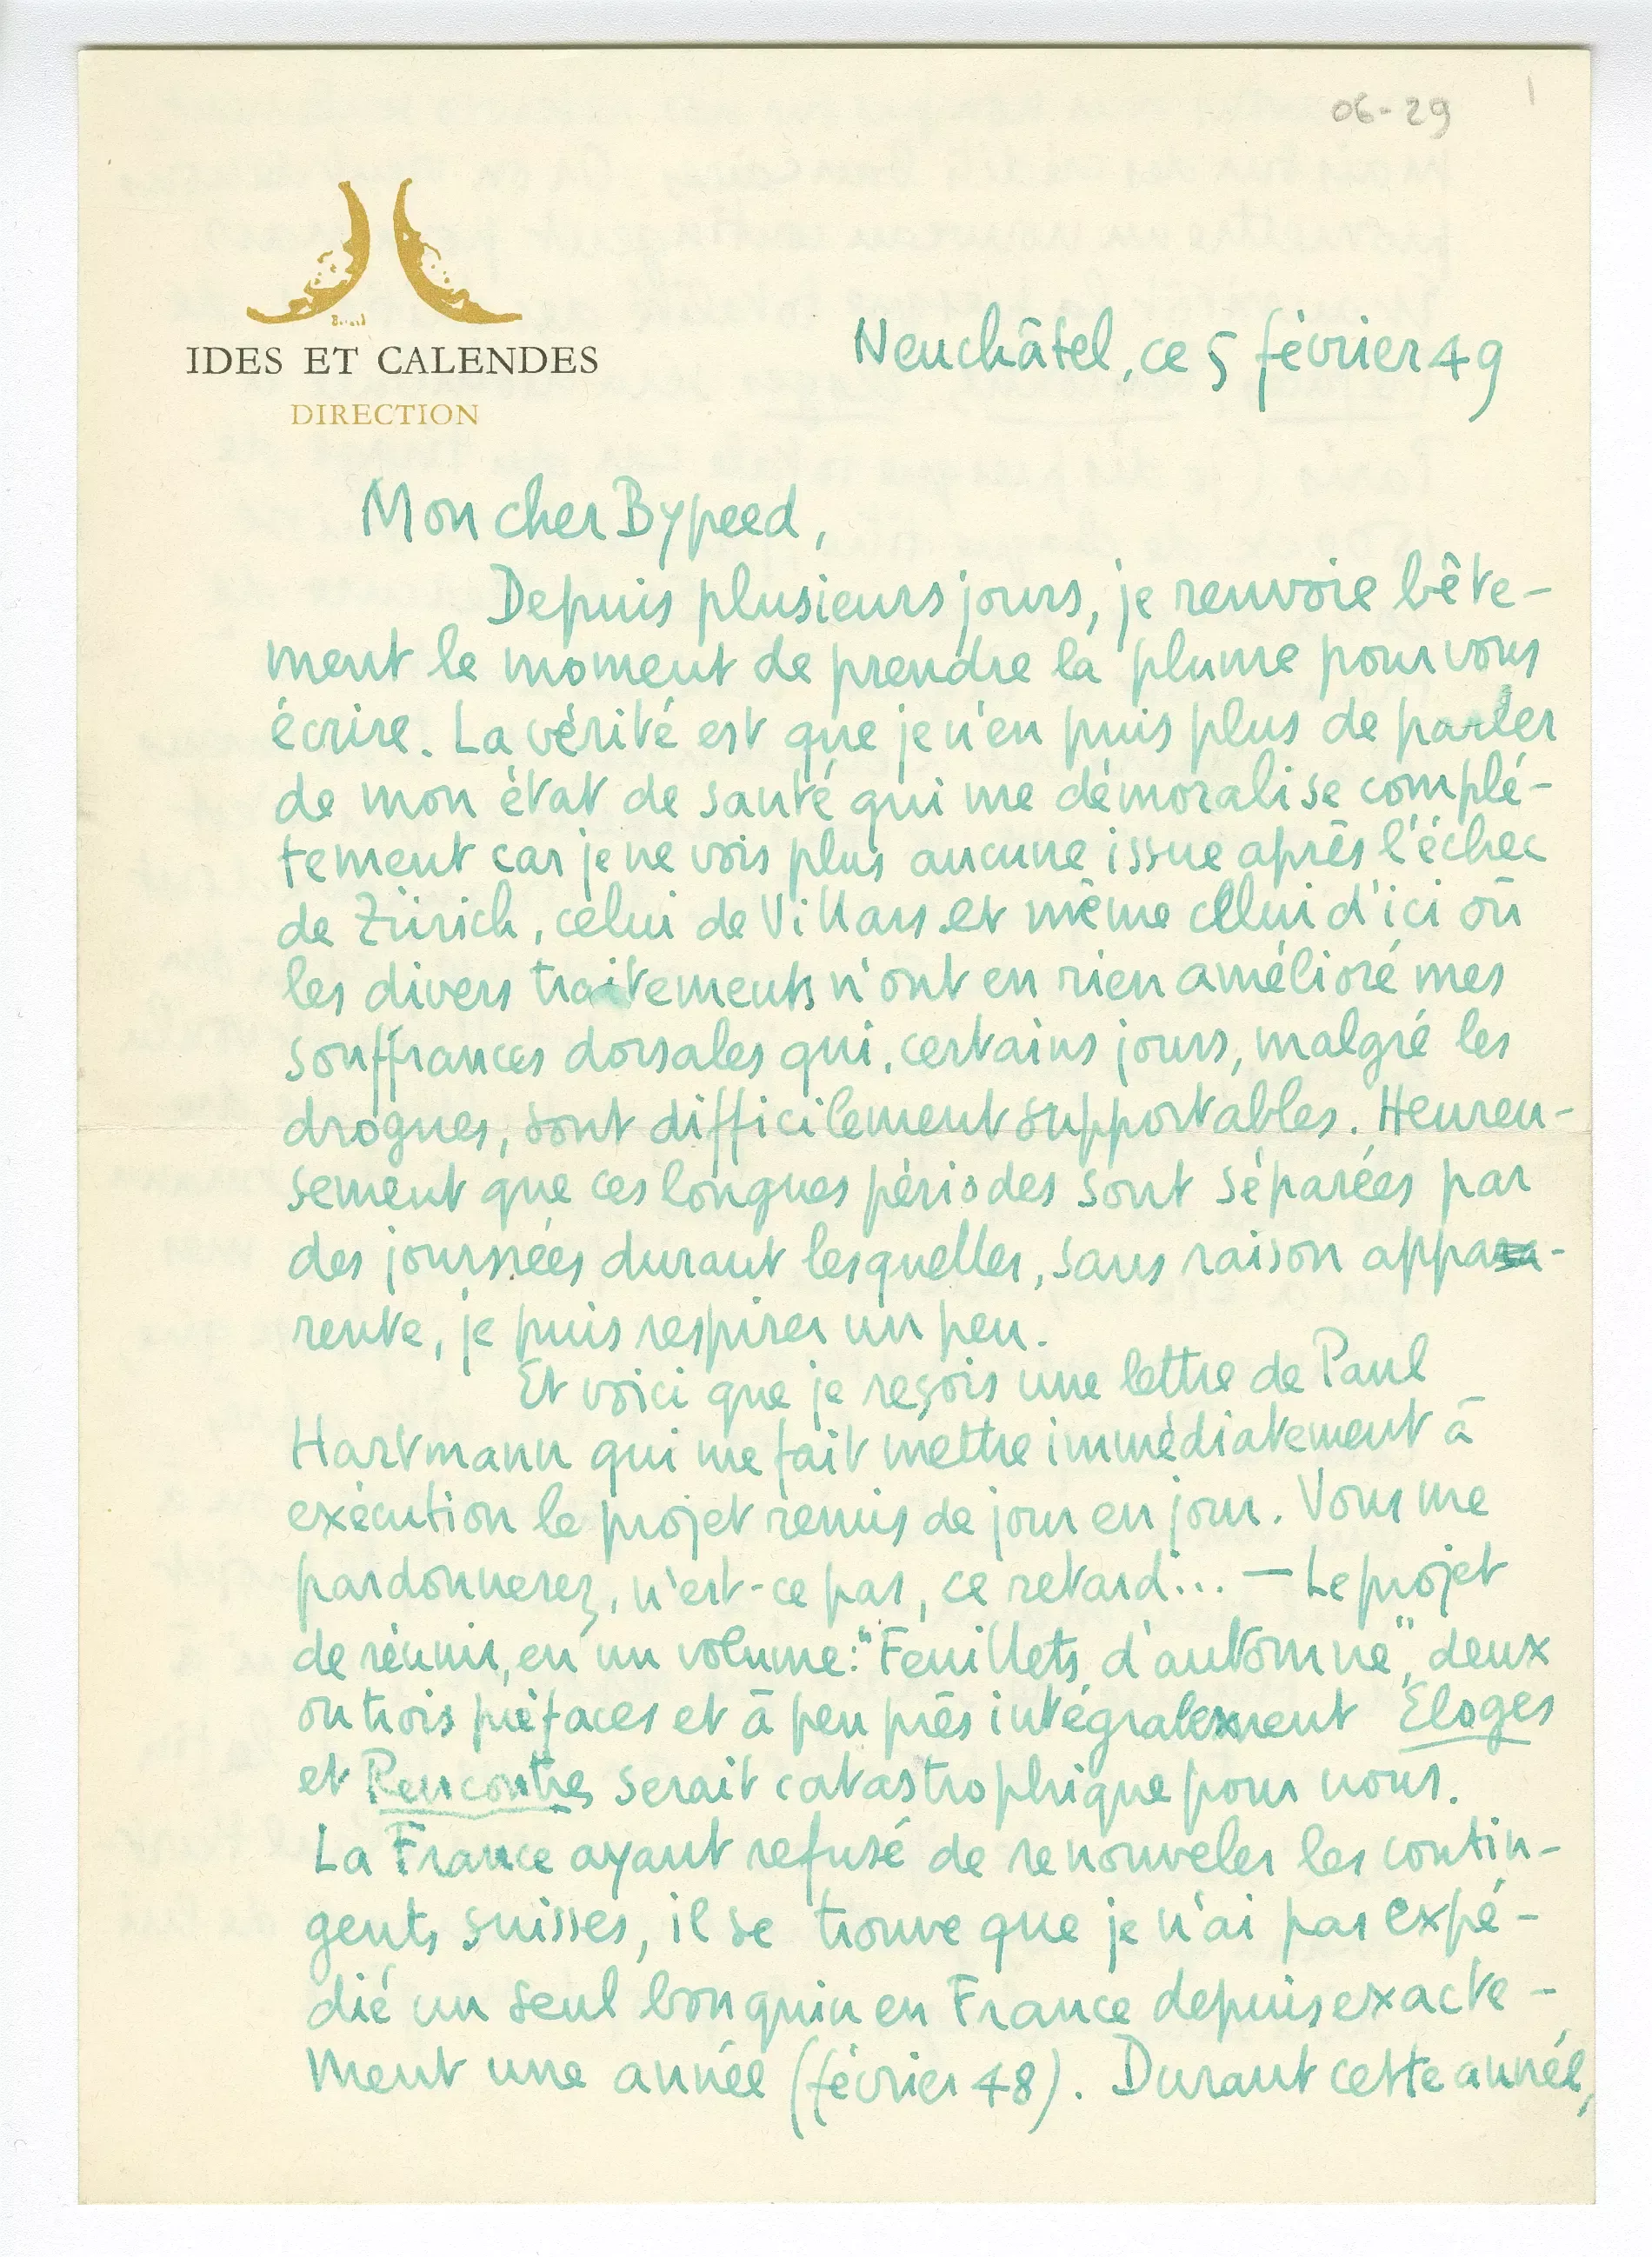 06-29
IDES ET CALENDES
DIRECTION
Neuchâtel, ce 5 février 49
Mon cher Bypeed,
Depuis plusieurs jours, je renvoie bête-
ment le moment de prendre la plume pour vous
écrire. La vérité est que je n'en puis plus de parler
de mon état de santé qui me démoralise complé-
tement car je ne vois plus aucune issue après l'échec
de Zürich, celui de Villars et même celui d'ici où
les divers traitements n'ont en rien amélioré mes
souffrances dorsales qui, certains jours, malgré les
drogues, sont difficilement supportables. Heureu-
sement que ces longues périodes sont séparées par
des journées durant lesquelles, sans raison appa-
rente, je puis respirer un peu.
Et voici que je reçois une lettre de Paul
Hartmann qui me fait mettre immédiatement à
exécution le projet remis de jour en jour. Vous me
pardonnerez, n'est-ce pas, ce retard... — Le projet
de réunir, en un volume: "Feuillets d'automne", deux
ou trois préfaces et à peu près intégralement Eloges
et Rencontres serait catastrophique pour nous.
La France ayant refusé de renouveler les contin-
gents suisses, il se trouve que je n'ai pas expé-
dié un seul bouquin en France depuis exacte-
ment une année (février 48). Durant cette année,